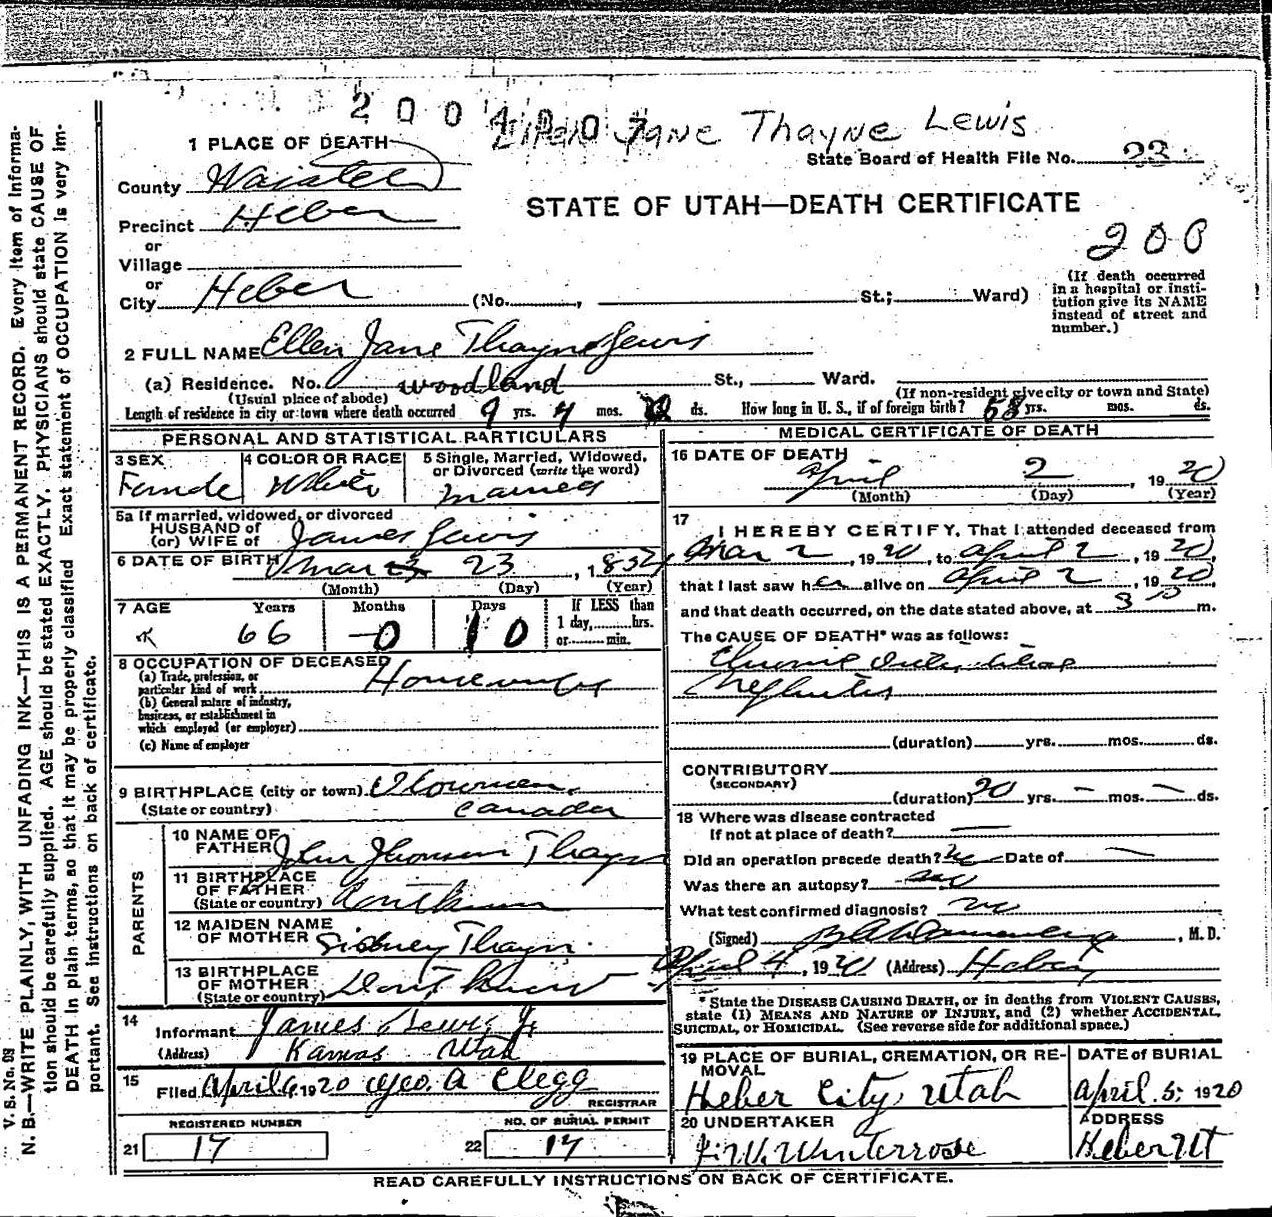 Jane Thayne Lewis
1 PLACE OF DEATH
State Board of Health File No. 23
County
STATE OF UTAH—DEATH CERTIFICATE
Precinct Heber
200
or
Village
or
City Heber (No. , St.; Ward)
(If death occurred in a hospital or institution give its NAME instead of street and number.)
2 FULL NAME Ellen Jane Thayne Lewis
(a) Residence. No. woodland St., Ward.
(Usual place of abode) (If non-resident give city or town and State)
Length of residence in city or town where death occurred 9 yrs. 4 mos. ds. How long in U. S., if of foreign birth? 58 yrs. mos. ds.
PERSONAL AND STATISTICAL PARTICULARS
3 SEX Female
4 COLOR OR RACE White
5 Single, Married, Widowed, or Divorced (write the word) married
5a If married, widowed, or divorced
HUSBAND of
(or) WIFE of James Lewis
6 DATE OF BIRTH Mar 23 23 , 185
(Month) (Day) (Year)
7 AGE Years Months Days If LESS than
66 0 10 1 day, hrs.
or min.
8 OCCUPATION OF DECEASED
(a) Trade, profession, or
particular kind of work Housewife
(b) General nature of industry,
business, or establishment in
which employed (or employer)
(c) Name of employer
9 BIRTHPLACE (city or town)
(State or country) Canada
PARENTS
10 NAME OF
FATHER John Thayn
11 BIRTHPLACE
OF FATHER
(State or country) Dont know
12 MAIDEN NAME
OF MOTHER Sidney Thayn.
13 BIRTHPLACE
OF MOTHER
(State or country) Dont know
14 Informant James Lewis Jr
(Address) Kamas Utah
15 Filed April 6, 1920 Geo. A Clegg
REGISTRAR
REGISTERED NUMBER
21 17
NO. OF BURIAL PERMIT
22 17
MEDICAL CERTIFICATE OF DEATH
16 DATE OF DEATH
April 2 , 1920
(Month) (Day) (Year)
17 I HEREBY CERTIFY, That I attended deceased from
Mar 2 , 1920, to April 2 , 1920,
that I last saw her alive on April 2 , 1920,
and that death occurred, on the date stated above, at 3 m.
The CAUSE OF DEATH* was as follows:
Chronic
(duration) yrs. mos. ds.
CONTRIBUTORY
(SECONDARY)
(duration) 20 yrs. — mos. — ds.
18 Where was disease contracted
If not at place of death? —
Did an operation precede death? no Date of —
Was there an autopsy? no
What test confirmed diagnosis?
(Signed) , M.D.
April 4, 1920 (Address) Heber
*State the DISEASE CAUSING DEATH, or in deaths from VIOLENT CAUSES,
state (1) MEANS AND NATURE OF INJURY, and (2) whether ACCIDENTAL,
SUICIDAL, or HOMICIDAL. (See reverse side for additional space.)
19 PLACE OF BURIAL, CREMATION, OR REMOVAL
Heber City, Utah
DATE of BURIAL
April 5, 1920
20 UNDERTAKER
J. W. Winterrose
ADDRESS
Heber Ut
READ CAREFULLY INSTRUCTIONS ON BACK OF CERTIFICATE.
V. S. No. 98
N. B.—WRITE PLAINLY, WITH UNFADING INK—THIS IS A PERMANENT RECORD. Every item of Informa-
tion should be carefully supplied. AGE should be stated EXACTLY. PHYSICIANS should state CAUSE OF
DEATH in plain terms, so that it may be properly classified. Exact statement of OCCUPATION is very im-
portant. See instructions on back of certificate.